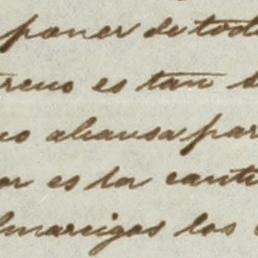 poner de todo
reno es tan
no alcansa par
or es la canti
lmacigos los